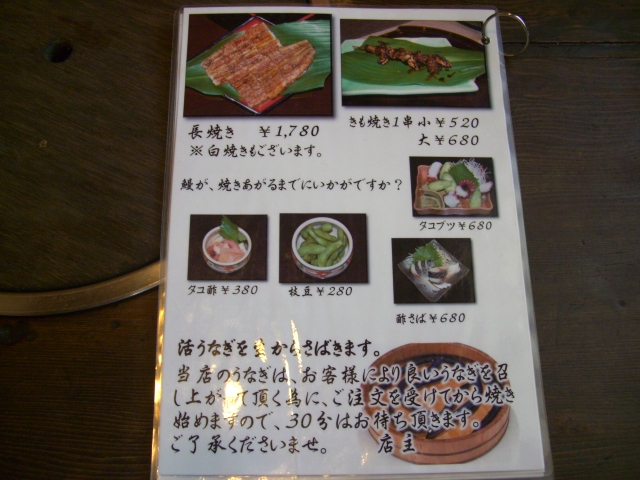 長焼き ￥1,780
※白焼きもございます。
きも焼き1串 小￥520
大￥680
鰻が、焼きあがるまでにいかがですか？
タコブツ￥680
タコ酢￥380
枝豆￥280
酢さば￥680
活うなぎを生からさばきます。
当店のうなぎは、お客様により良いうなぎを召
し上がって頂く為に、ご注文を受けてから焼き
始めますので、30分はお待ち頂きます。
ご了承くださいませ。 店主